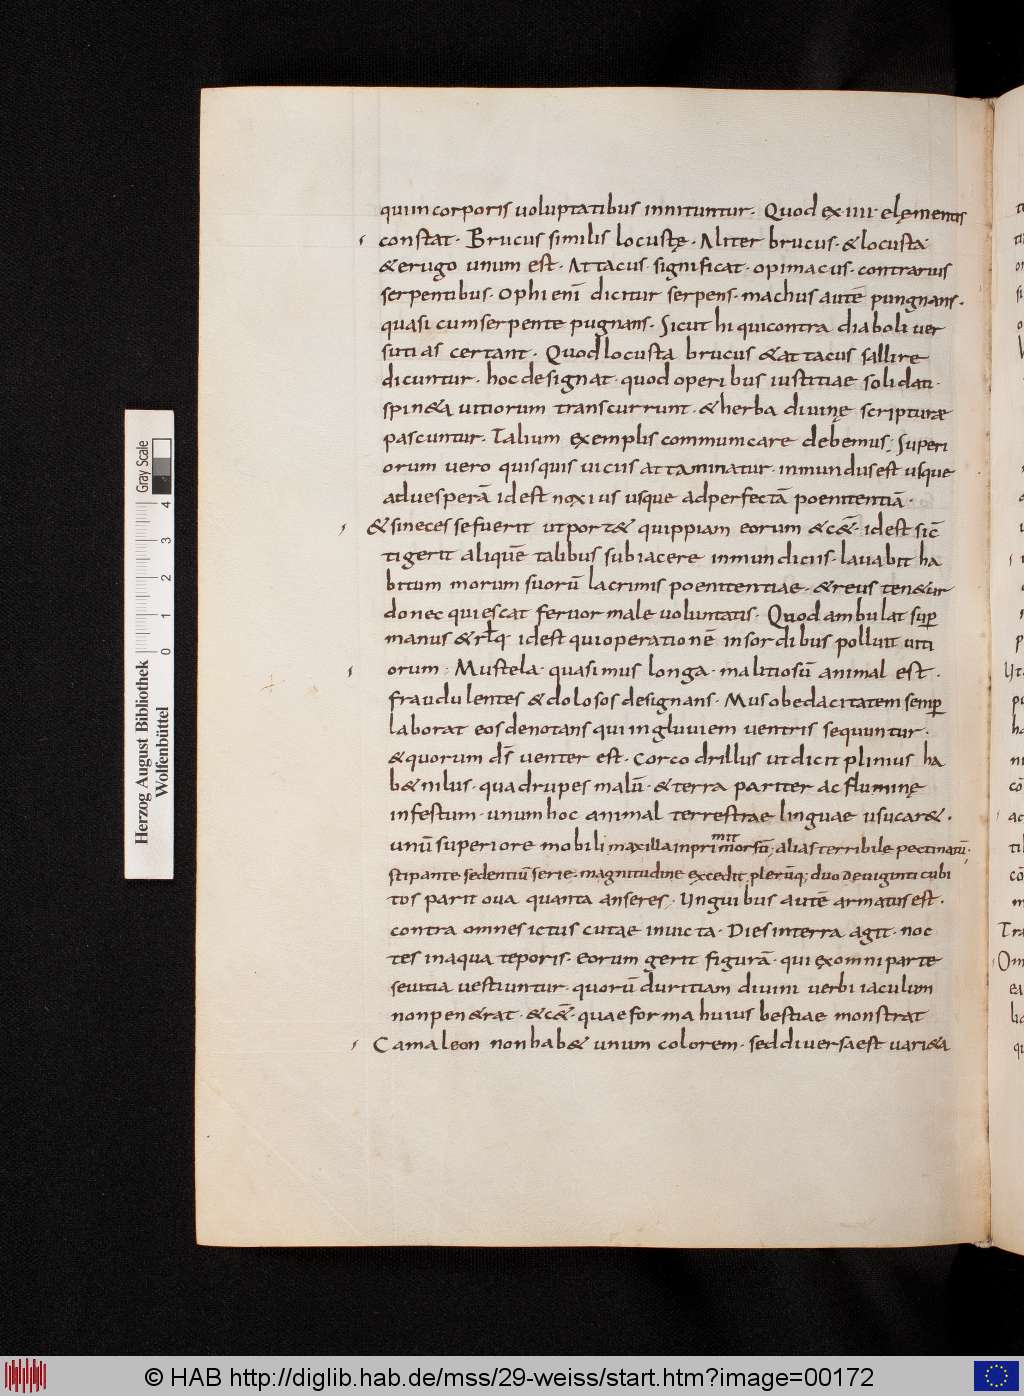 quiincorporis uoluptatibus innituntur· Quod ex·iiii· elęmentis
constat· Brucus similis locustę· Aliter brucus· &locusta
&erugo unum est· Attacus· significat· opimacus· contrarius
serpentibus· Ophi enī dicitur serpens· machus autē pungnans·
quasi cumserpente pugnans· Sicut hi quicontra diaboli uer
sutias certant· Quod locusta brucus &attacus sallire
dicuntur· hoc designat· quod operibus iustitiae solidati·
spin&a uitiorum transcurrunt· &herba diuinę scripturae
pascuntur· Talium exemplis communicare debemus; Superi
orum uero quisquis uiciis attaminatur· inmundus est usque
aduesperā id est noxius usque adperfectā poenitentiā·
&sineces sefuerit utport& quippiam eorum &c&̄· id est sic̄
tigerit aliquē talibus subiacere inmundiciis· lauabit ha
bitum morum suorū lacrimis poenitentiae· &reus ten&ur
donec quiescat feruor male uoluntatis· Quod ambulat sup̄
manus &rłq· id est qui operationē insordibus polluit uiti
orum· Mustela· quasi mus longa· malitiosū animal est·
fraudulentes &dolosos designans· Mus obedacitatem semp̄
laborat eos denotans qui ingluuiem uentris sequuntur·
&quorum ds̄ uenter est· Corcodrillus ut dicit plinius ha
b& nilus· quadrupes malū· &terra pariter ac fluminę
infestum· unum hoc animal terrestrae linguae usucar&·
unū superiore mobili maxilla inprimit morsū; alias terribile pectinatū;
stipante sedentiū serie· magnitudine excedit plerūq; duodeuiginti cubi
tos parit oua quanta anseres· Unguibus autē armatus est·
contra omnes ictus cutae inuicta· Dies interra agit· noc
tes inaqua teporis· eorum gerit figurā· qui ex omni parte
seuitia uestiuntur· quorū duritiam diuini uerbi iaculum
non pen&rat· &c&̄· quae forma huius bestiae monstrat
Camaleon non hab& unum colorem· sed diuersa est uari&a
Herzog August Bibliothek
Wolfenbüttel
Gray Scale
0 1 2 3 4
© HAB http://diglib.hab.de/mss/29-weiss/start.htm?image=00172